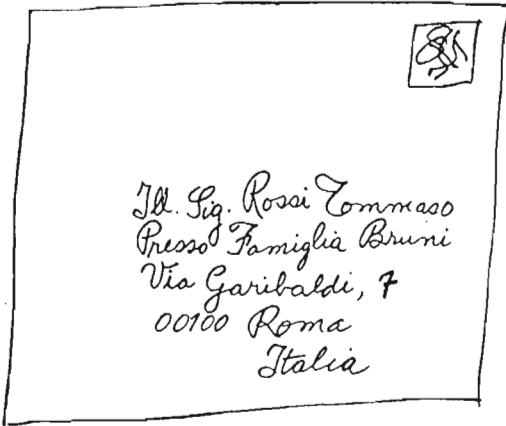 Ill. Sig. Rossi Tommaso
Presso Famiglia Bruni
Via Garibaldi, 7
00100 Roma
Italia